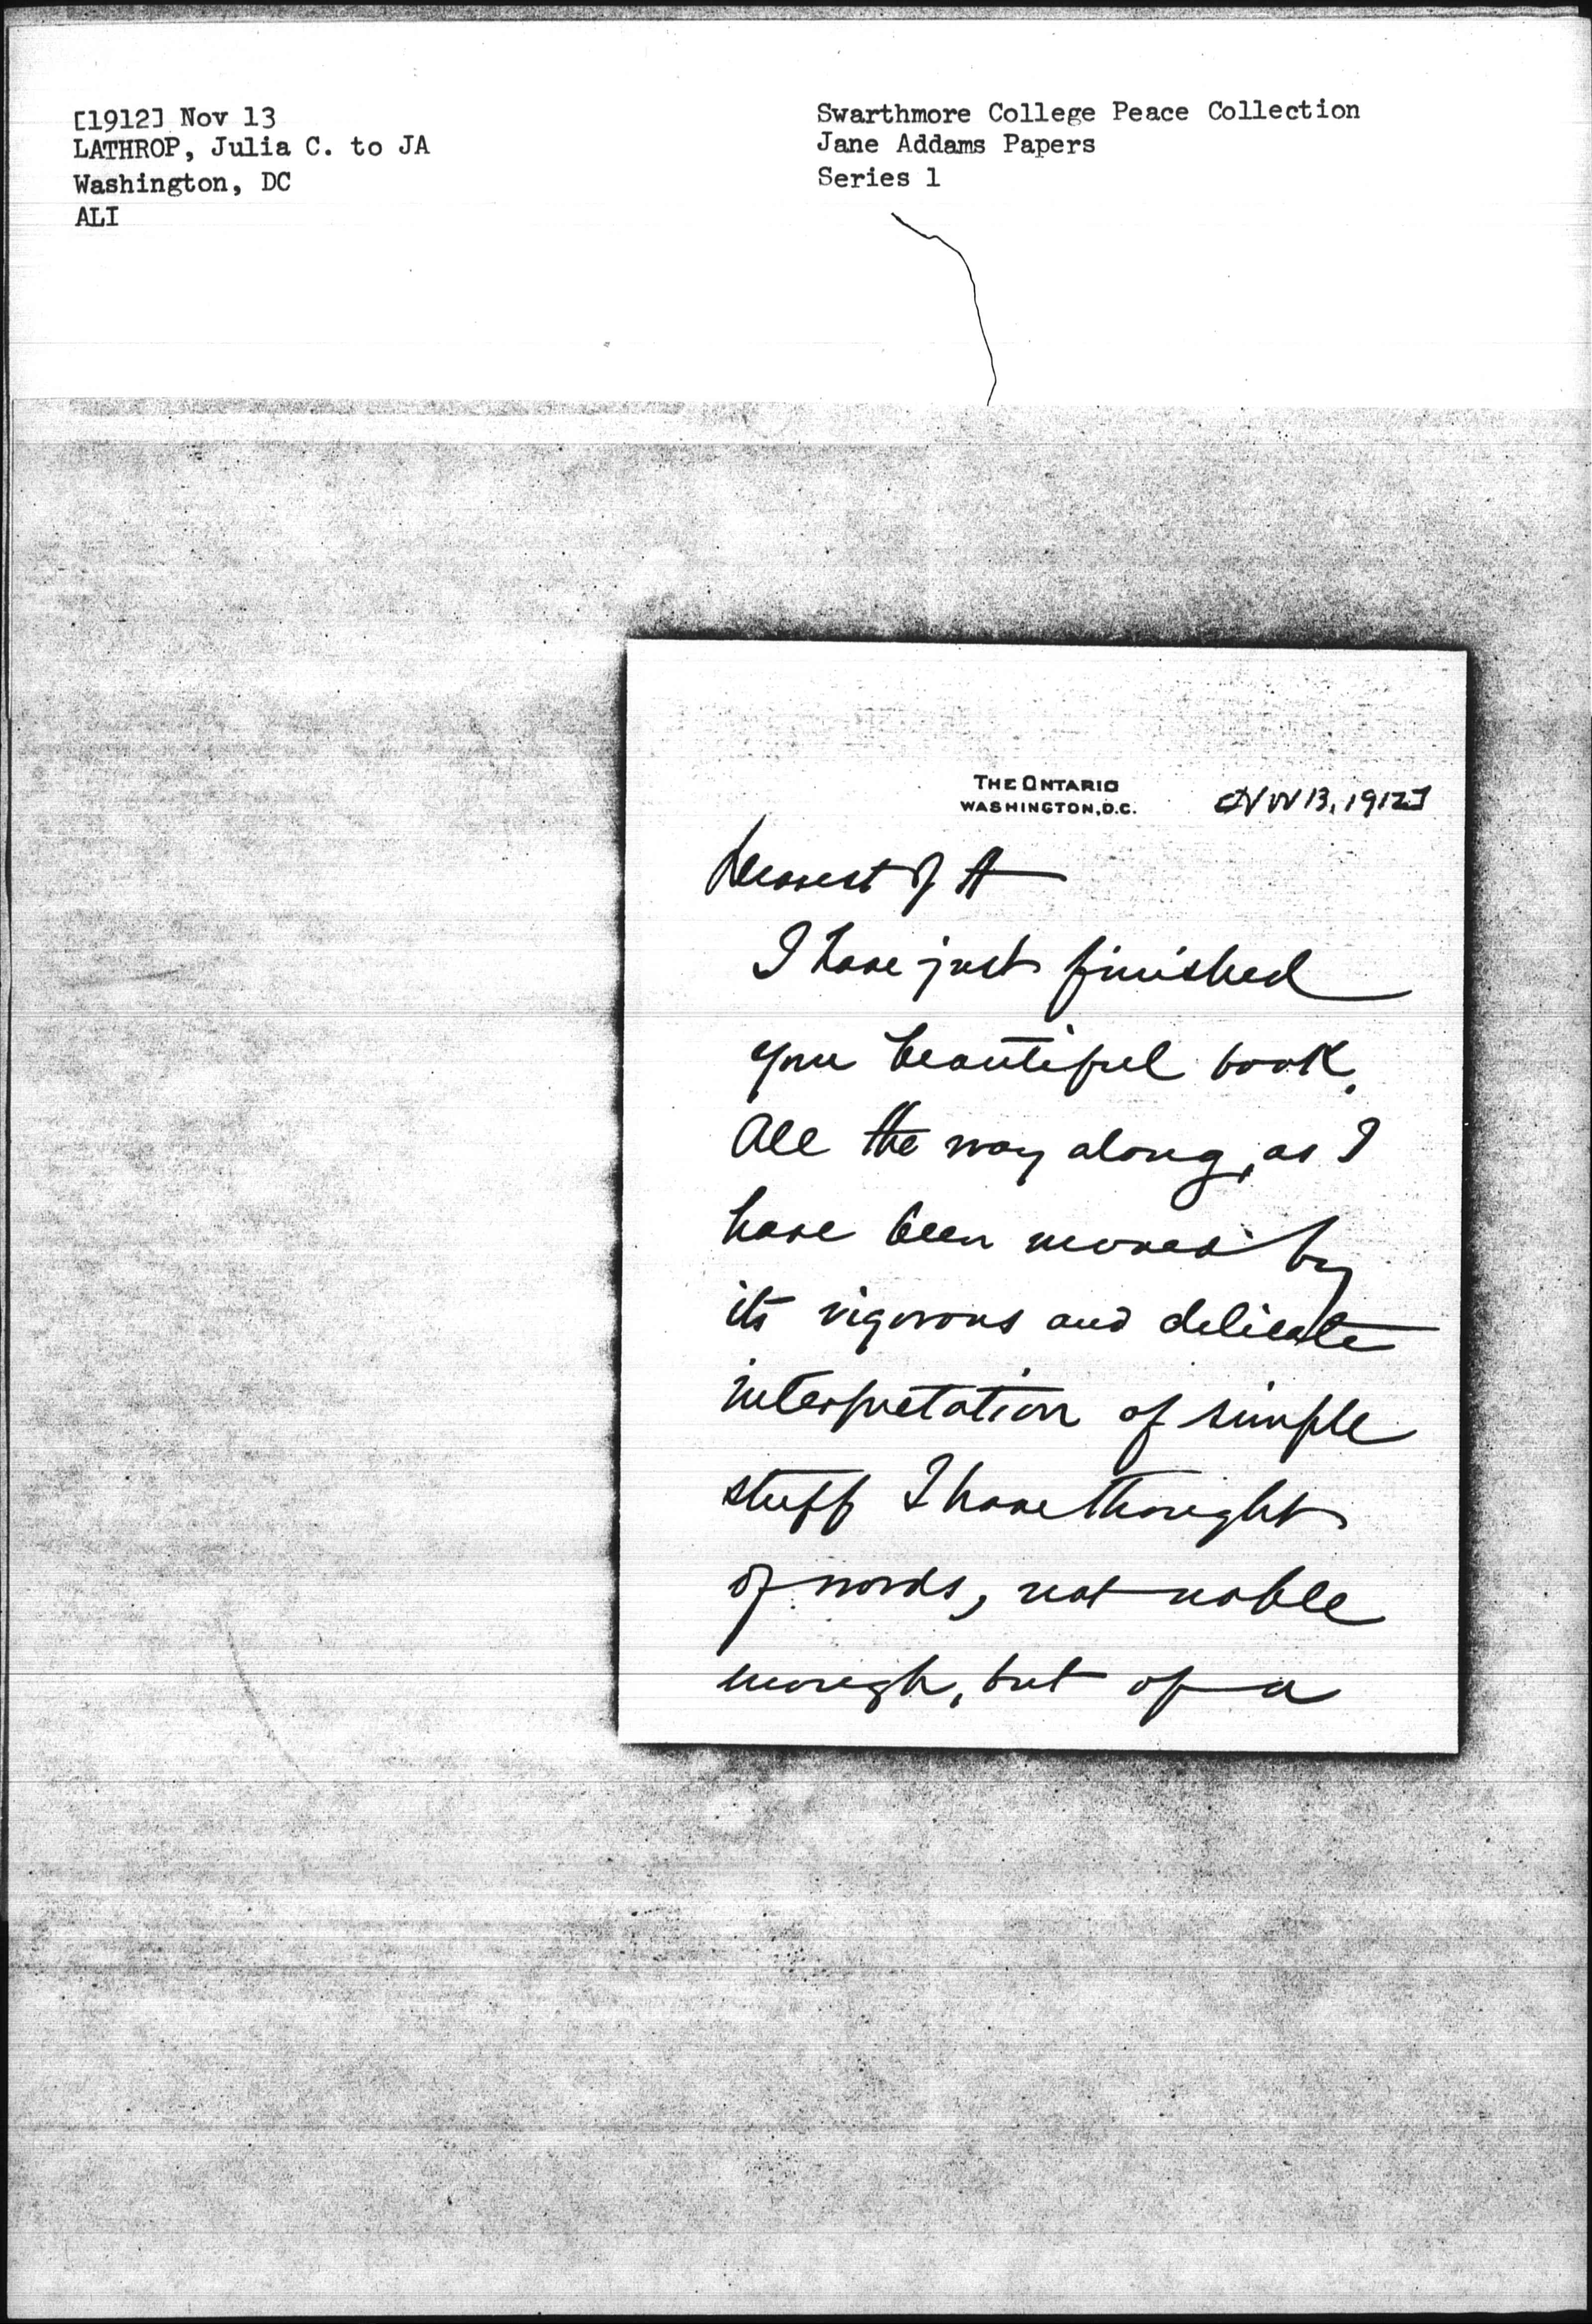 [1912] Nov 13
LATHROP, Julia C. to JA
Washington, DC
ALI
Swarthmore College Peace Collection
Jane Addams Papers
Series 1
THE ONTARIO
WASHINGTON, D.C.
[Nov 13, 1912]
Dearest J A
I have just finished
your beautiful book.
All the way along, as I
have been moved by
its vigorous and delicate
interpretation of simple
stuff I have thought
of words, not noble
enough, but of a